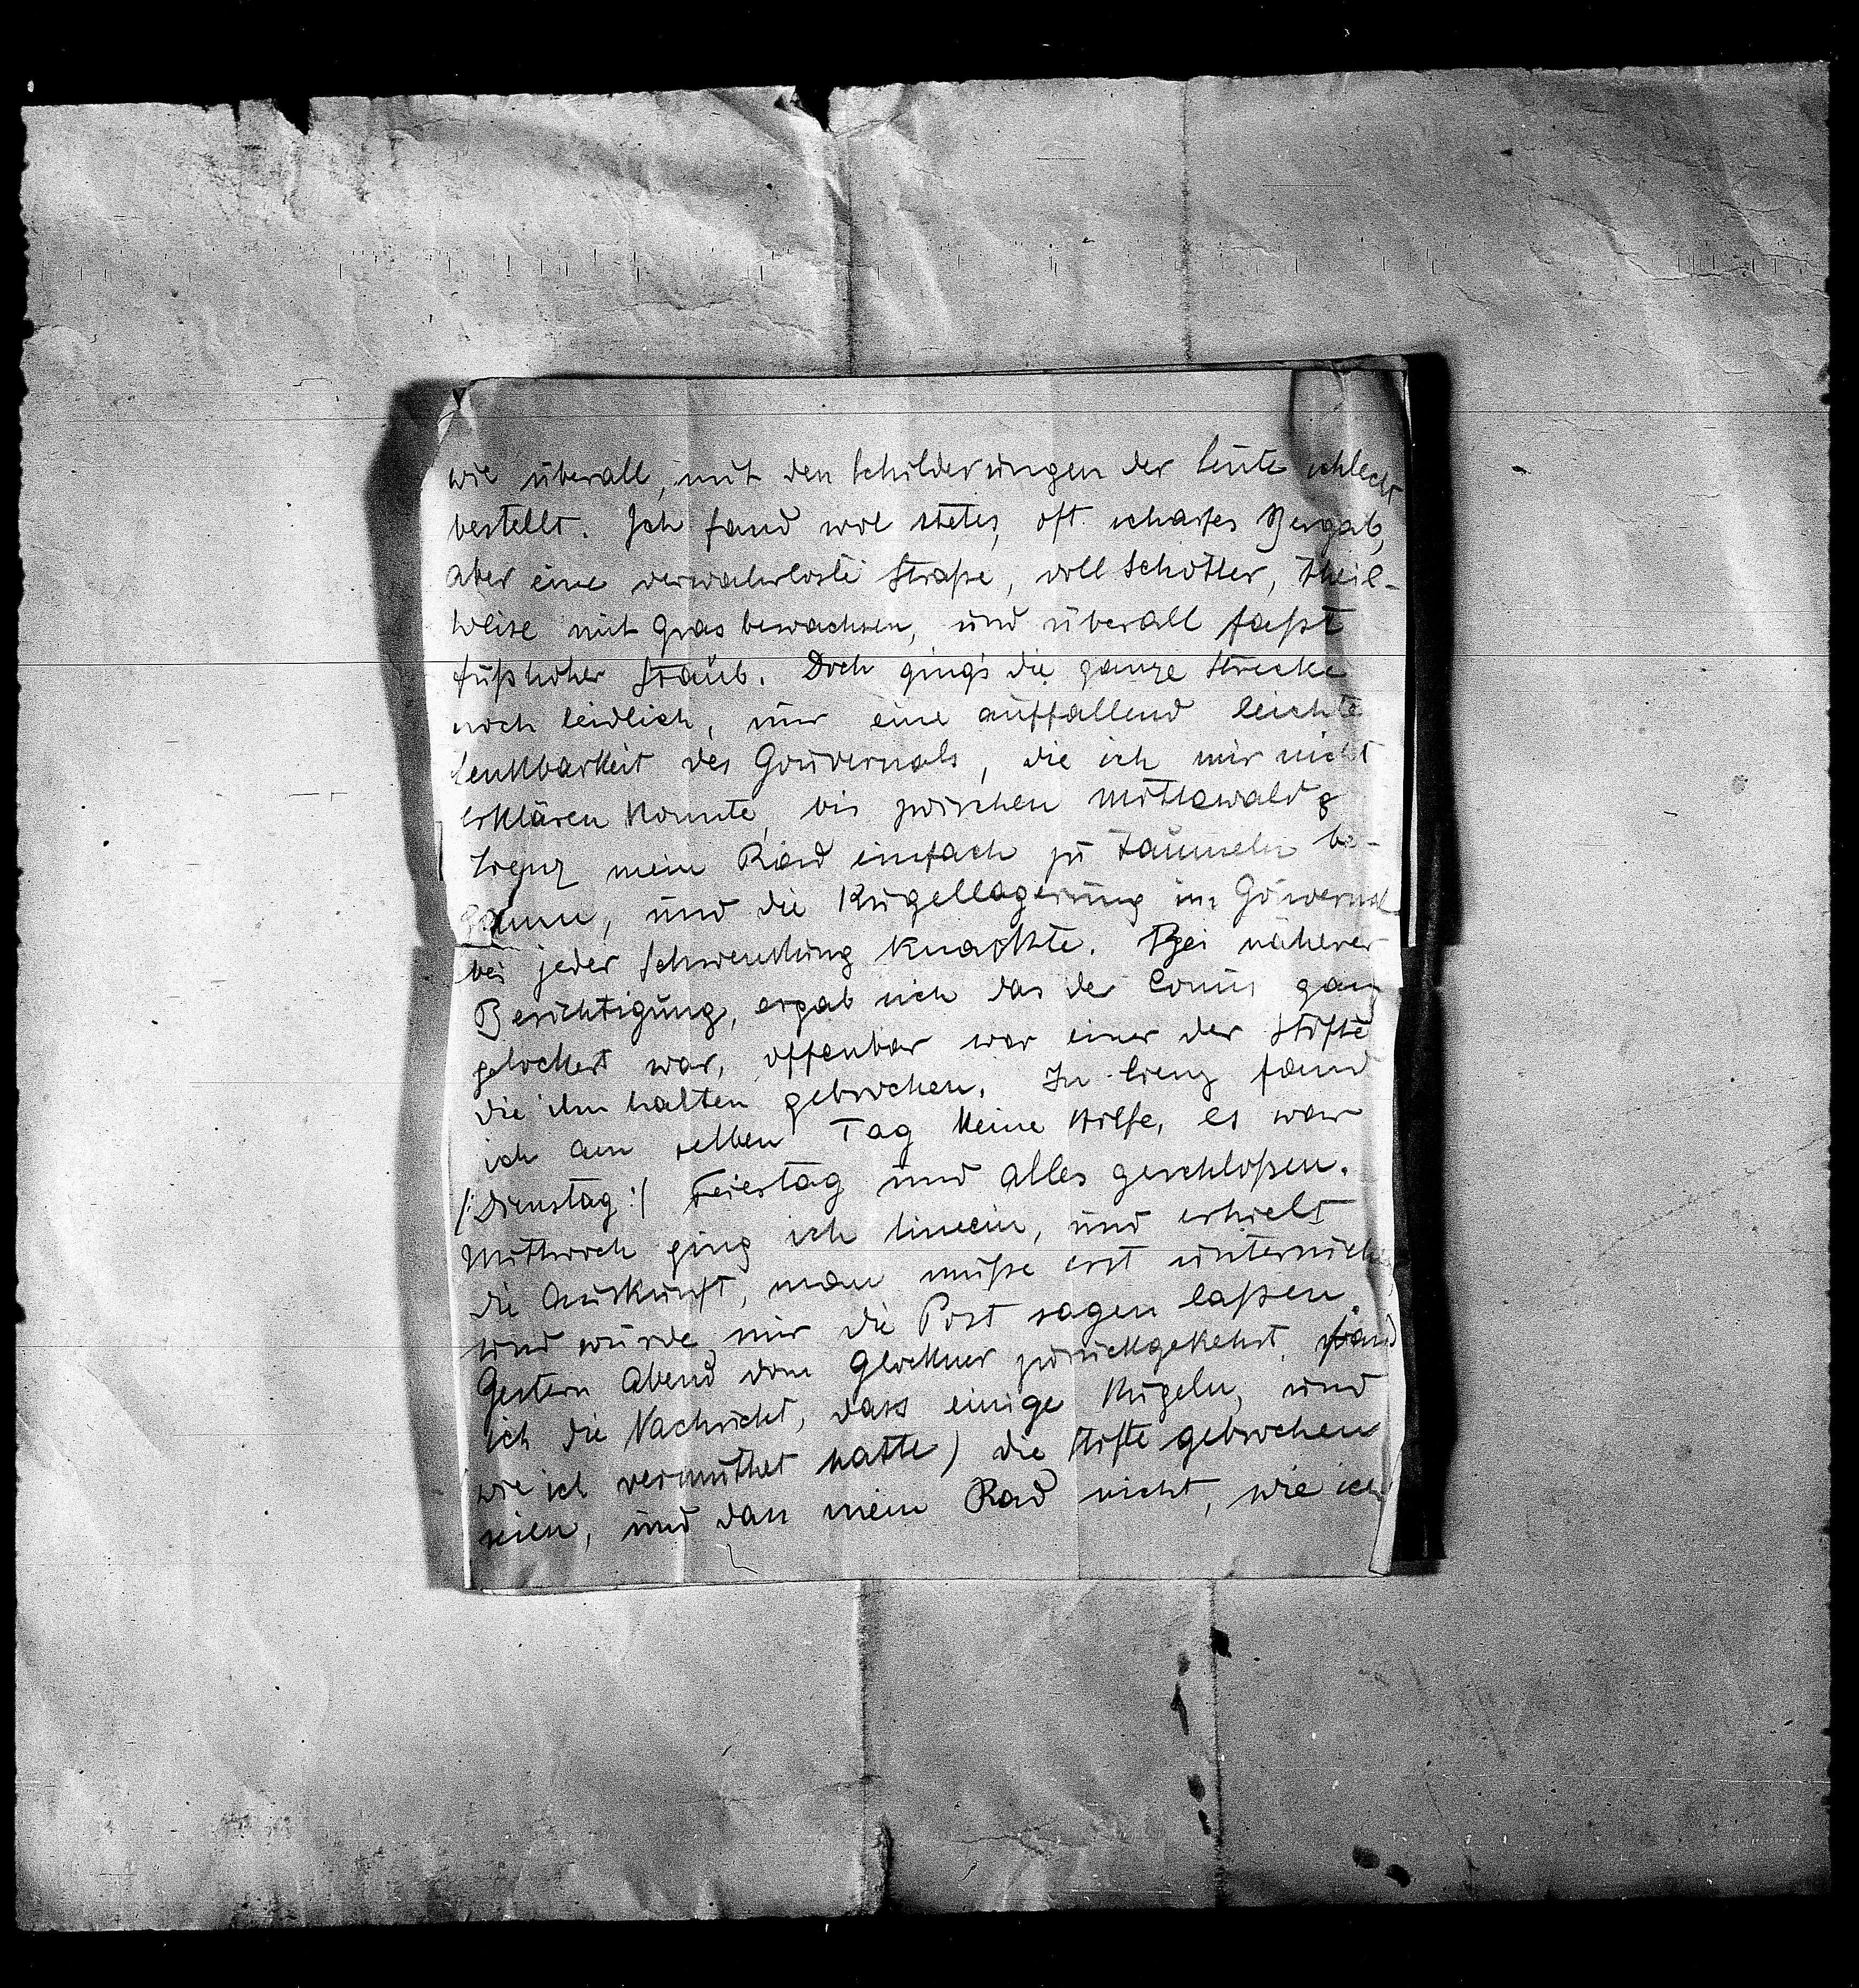 wie überall, mit den Schilderungen der Leute schlecht
bestellt. Ich fand wol stetes, oft scharfes Bergab,
aber eine verwahrloste Straße, voll Schotter, theil-
weise mit Gras bewachsen, und überall faßt
fußhoher Staub. Doch ging's die ganze Strecke
noch leidlich, nur eine auffallend leichte
Lenkbarkeit des Gouvernals, die ich mir nicht
erklären konnte, bis zwischen Mittewald &
Lienz mein Rad einfach zu taumeln be-
gann, und die Kugellagerung im Gouvernal
bei jeder Schwenkung knackte. Bei näherer
Besichtigung, ergab sich das der Conus ganz
gelockert war, offenbar war einer der Stifte
die ihn halten gebrochen. In Lienz fand
ich am selben Tag keine Hilfe, es war
/:Dienstag:/ Feiertag und alles geschloßen.
Mittwoch ging ich hinein, und erhielt
die Auskunft, man müße erst untersuchen,
und würde mir die Post sagen laßen.
Gestern Abend vom Glockner zurückgekehrt, fand
ich die Nachricht, dass einige Kugeln, und
wie ich vermuthet hatte) die Stifte gebrochen
seien, und dass mein Rad nicht, wie ich